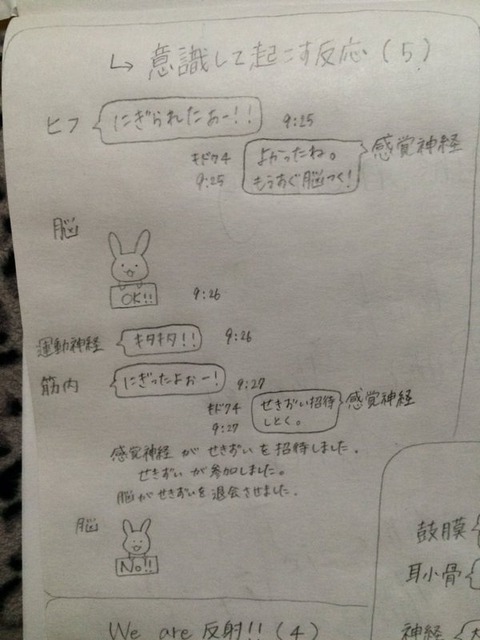 ↳ 意識して起こす反応(5)
ヒフ にぎられたおー!! 9:25
キドク4 9:25 よかったね。 感覚神経
もうすぐ脳つく!
脳
OK!! 9:26
運動神経 キタキタ!! 9:26
筋肉 にぎったよぉー! 9:27
キドク4 9:27 せきずい招待 感覚神経
しとく。
感覚神経 が せきずい を 招待しました.
せきずい が 参加しました。
脳が せきずいを 退会させました.
脳
No!!
鼓膜
耳小骨
We are 反射!!(4)
神経